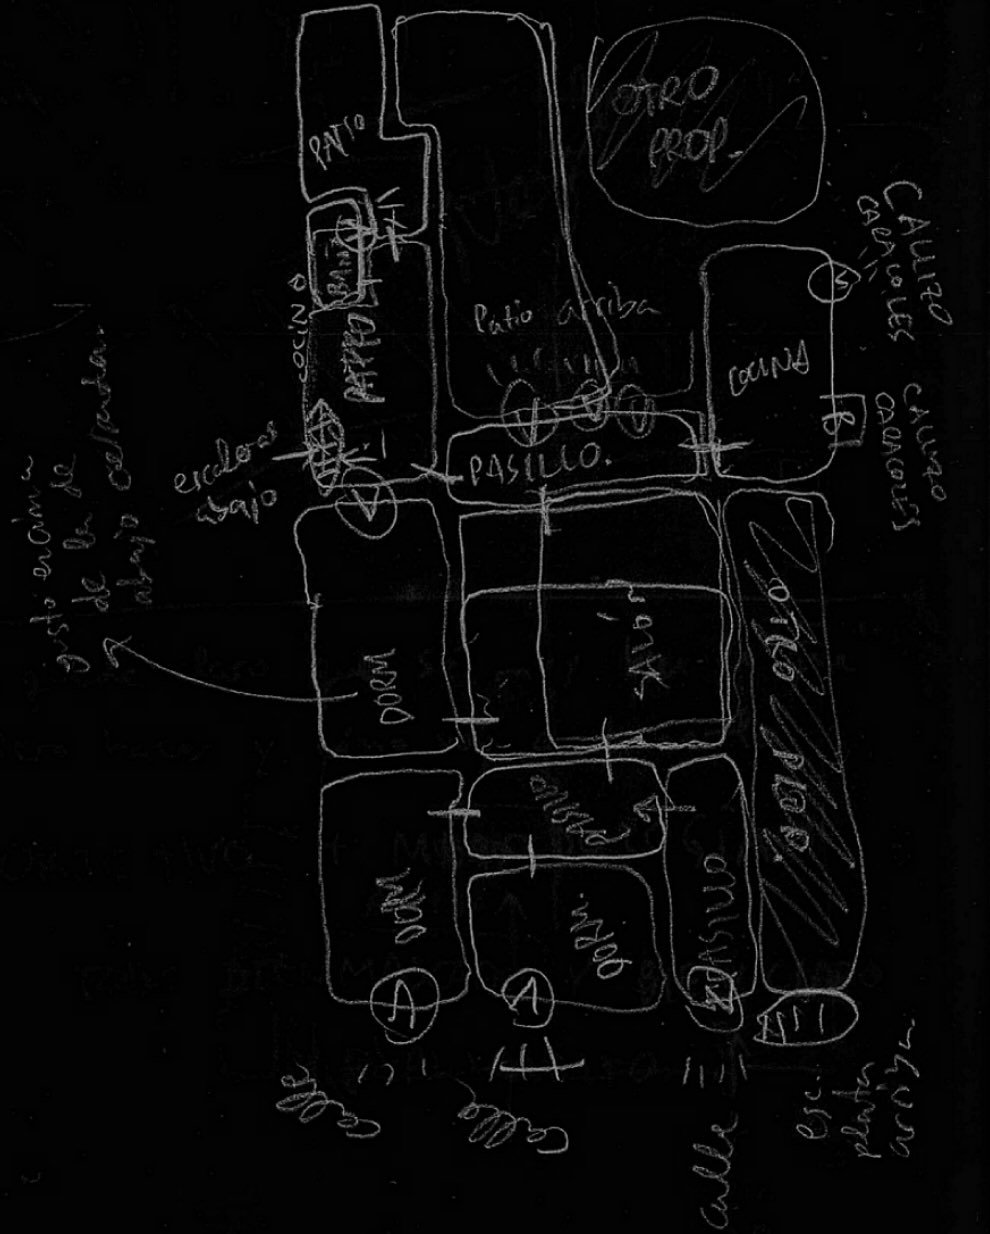 OTRO
PROP.
PATIO
CALLIZO
CARACOLES
BAÑ
COCINA
Patio arriba
PATIO
COCINA
CALLIZO
CARACOLES
B
PASILLO.
escalera
abajo
justo encima
de la de
abajo
DORM
SALÓN
OTRO PROP.
PASILLO
DORM
DORM.
PASILLO
Calle
Calle
calle
esc.
planta
arriba